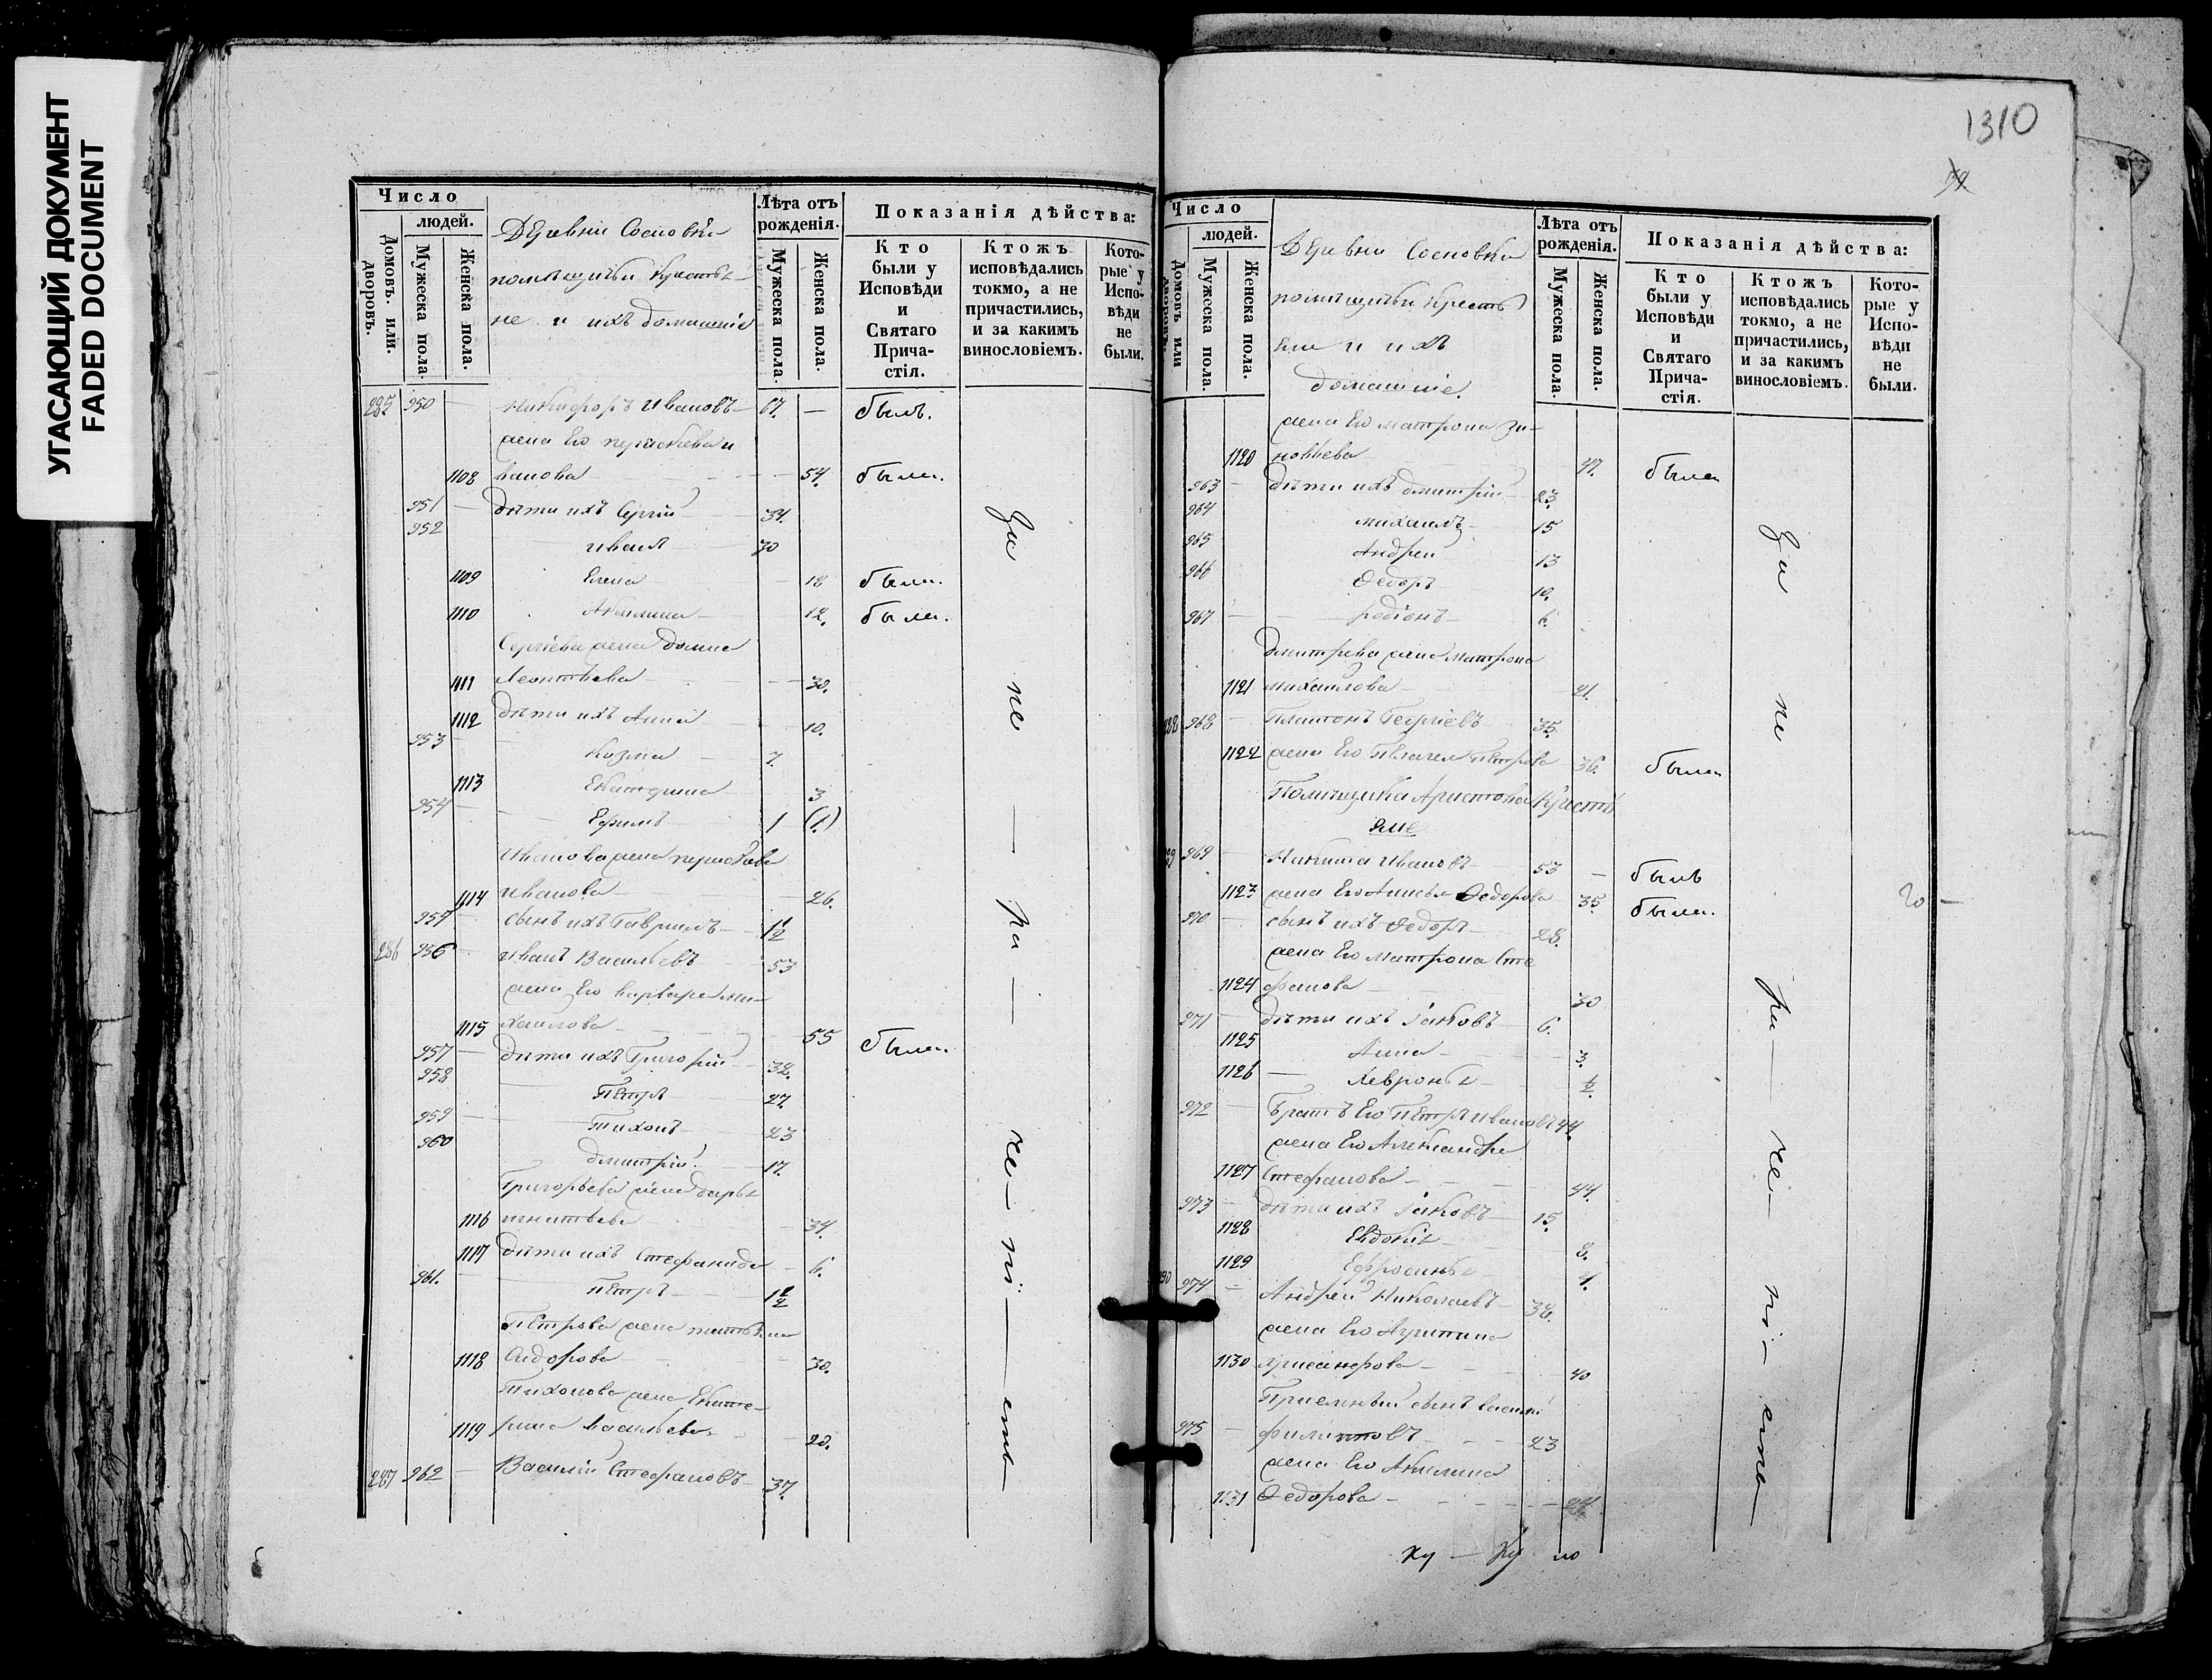 УГАСАЮЩИЙ ДОКУМЕНТ
FADED DOCUMENT
Число
людей.
Домовъ. или. дворовъ.
Мужеска пола.
Женска пола.
Деревни Сосновки
помѣщичьи крестья-
не и ихъ домашніе
Лѣта отъ рожденія.
Мужеска пола.
Женска пола.
Показанія дѣйства:
Кто были у Исповѣди и Святаго Прича-стія.
Ктожъ исповѣдались токмо, а не причастились, и за какимъ винословіемъ.
Кото-рые у Испо-вѣди не были.
285 950 — Никифоръ Ивановъ — 67. — былъ.
жена Его параскева и
1108 ванова — 54. была.
951 — дѣти ихъ Сергій — 34.
952 Иванъ 30
1109 Елена — 18 была.
1110 Акилина — 12. была.
Сергіева жена домна
1111 Леонтьева — 30.
1112 дѣти ихъ Анна — 10.
953 — Козма — 7.
1113 Екатерина — 3
954 — Ефимъ 1 (1.)
Иванова жена параскева
1114 Иванова — 26.
955 — сынъ ихъ Гавріилъ — 1/2
286 956 — Иванъ Васильевъ — 53
жена Его варвара ми-
1115 хаилова — 55 была.
957 — дѣти ихъ Григорій — 38.
958 Петръ 27.
959 — Тихонъ — 23
960 дмитрій. — 17.
Григорьева жена дарья
1116 игнатьева 34.
1117 дѣти ихъ Стефанида — 6.
961. — петръ — 1/2
Петрова жена татьяна
1118 Сидорова — 30.
Тихонова жена Екате-
1119 рина Васильева — 20.
287 962 — Василій Стефановъ — 37.
За не — ра — че — ні — емъ —
1310
Число
людей.
Домовъ или дворовъ.
Мужеска пола.
Женска пола.
Деревни Сосновки
помѣщичьи кресть
яне и ихъ
домашніе.
Лѣта отъ рожденія.
Мужеска пола.
Женска пола.
Показанія дѣйства:
Кто были у Исповѣди и Святаго Прича-стія.
Ктожъ исповѣдались токмо, а не причастились, и за какимъ винословіемъ.
Кото-рые у Испо-вѣди не были.
жена Его матрона Зи-
1120 новьева — 47. была
963 — дѣти ихъ дмитрій — 23.
964 михаилъ — 15
965 Андрей 13
966 Ѳедоръ 10.
967 — родіонъ — 6.
дмитрева жена матрона
1121 михаилова — 21.
288 968 — Платонъ Георгіевъ — 35.
1122 жена Его Пелагея Петрова 36. была
Помѣщика Аристова кресть
яне
969 — Никита Ивановъ — 53 — былъ
1123 жена Его Анисья Ѳедорова 35. была.
970 — сынъ ихъ Ѳедоръ — 28.
жена Его матрона Сте
1124 фанова 30
971 — дѣти ихъ Іаковъ — 6.
1125 Анна — 3.
1126 — Хевронья — 1/2.
972 — братъ Его Петръ Ивановъ 44.
жена Его Александра
1127 Стефанова — 44.
973 — дѣти ихъ Іаковъ — 15.
1128 Евдокія 8.
1129 Ефросинья — 4.
290 974 — Андрей Николаевъ — 38.
жена Его Христина
1130 Хрисанфова — 40
Пріемный сынъ василій
975 — филиповъ — 23
жена Его Акилина
1131 Ѳедорова —
За не ра — че — ні — емъ —